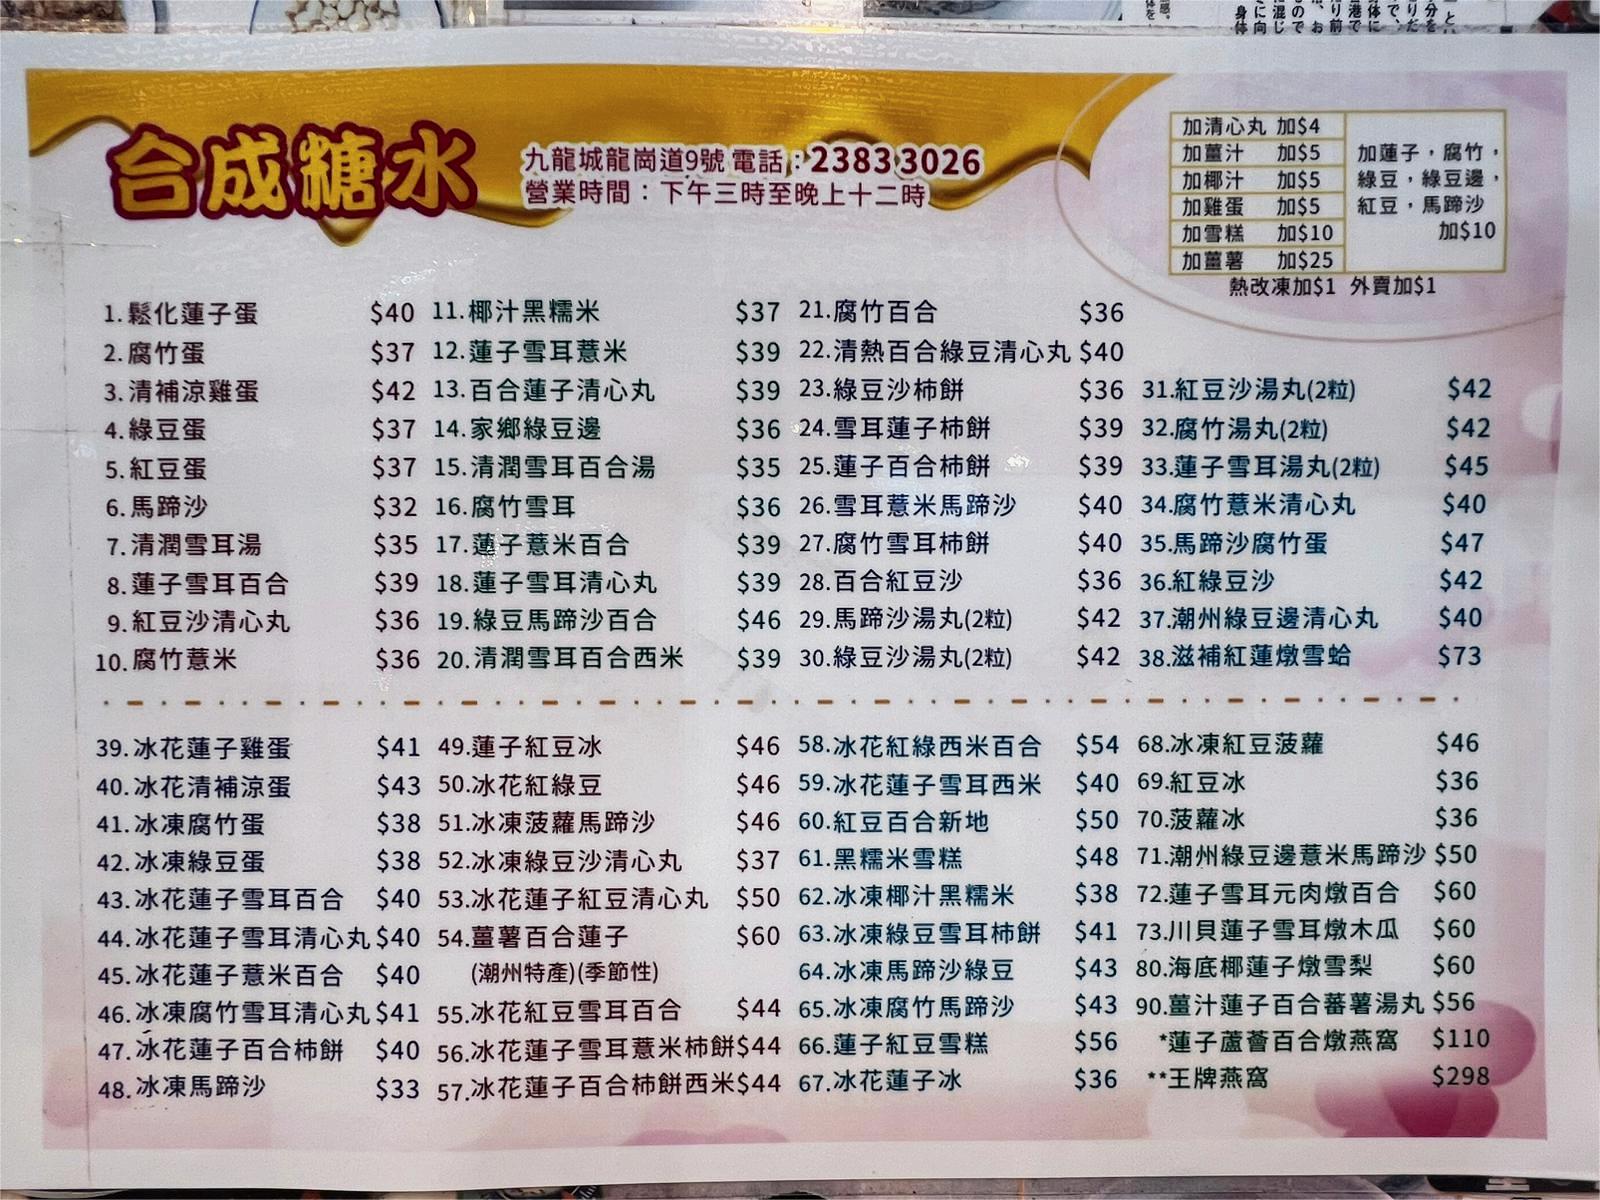 合成糖水
九龍城龍崗道9號 電話：23833026
營業時間：下午三時至晚上十二時
加清心丸 加$4
加薑汁 加$5
加椰汁 加$5
加雞蛋 加$5
加雪糕 加$10
加薑薯 加$25
加蓮子，腐竹，
綠豆，綠豆邊，
紅豆，馬蹄沙
加$10
熱改凍加$1 外賣加$1
1. 鬆化蓮子蛋 $40
2. 腐竹蛋 $37
3. 清補涼雞蛋 $42
4. 綠豆蛋 $37
5. 紅豆蛋 $37
6. 馬蹄沙 $32
7. 清潤雪耳湯 $35
8. 蓮子雪耳百合 $39
9. 紅豆沙清心丸 $36
10. 腐竹薏米 $36
11. 椰汁黑糯米 $37
12. 蓮子雪耳薏米 $39
13. 百合蓮子清心丸 $39
14. 家鄉綠豆邊 $36
15. 清潤雪耳百合湯 $35
16. 腐竹雪耳 $36
17. 蓮子薏米百合 $39
18. 蓮子雪耳清心丸 $39
19. 綠豆馬蹄沙百合 $46
20. 清潤雪耳百合西米 $39
21. 腐竹百合 $36
22. 清熱百合綠豆清心丸 $40
23. 綠豆沙柿餅 $36
24. 雪耳蓮子柿餅 $39
25. 蓮子百合柿餅 $39
26. 雪耳薏米馬蹄沙 $40
27. 腐竹雪耳柿餅 $40
28. 百合紅豆沙 $36
29. 馬蹄沙湯丸(2粒) $42
30. 綠豆沙湯丸(2粒) $42
31. 紅豆沙湯丸(2粒) $42
32. 腐竹湯丸(2粒) $42
33. 蓮子雪耳湯丸(2粒) $45
34. 腐竹薏米清心丸 $40
35. 馬蹄沙腐竹蛋 $47
36. 紅綠豆沙 $42
37. 潮州綠豆邊清心丸 $40
38. 滋補紅蓮燉雪蛤 $73
39. 冰花蓮子雞蛋 $41
40. 冰花清補涼蛋 $43
41. 冰凍腐竹蛋 $38
42. 冰凍綠豆蛋 $38
43. 冰花蓮子雪耳百合 $40
44. 冰花蓮子雪耳清心丸 $40
45. 冰花蓮子薏米百合 $40
46. 冰凍腐竹雪耳清心丸 $41
47. 冰花蓮子百合柿餅 $40
48. 冰凍馬蹄沙 $33
49. 蓮子紅豆冰 $46
50. 冰花紅綠豆 $46
51. 冰凍菠蘿馬蹄沙 $46
52. 冰凍綠豆沙清心丸 $37
53. 冰花蓮子紅豆清心丸 $50
54. 薑薯百合蓮子 $60
(潮州特產)(季節性)
55. 冰花紅豆雪耳百合 $44
56. 冰花蓮子雪耳薏米柿餅 $44
57. 冰花蓮子百合柿餅西米 $44
58. 冰花紅綠西米百合 $54
59. 冰花蓮子雪耳西米 $40
60. 紅豆百合新地 $50
61. 黑糯米雪糕 $48
62. 冰凍椰汁黑糯米 $38
63. 冰凍綠豆雪耳柿餅 $41
64. 冰凍馬蹄沙綠豆 $43
65. 冰凍腐竹馬蹄沙 $43
66. 蓮子紅豆雪糕 $56
67. 冰花蓮子冰 $36
68. 冰凍紅豆菠蘿 $46
69. 紅豆冰 $36
70. 菠蘿冰 $36
71. 潮州綠豆邊薏米馬蹄沙 $50
72. 蓮子雪耳元肉燉百合 $60
73. 川貝蓮子雪耳燉木瓜 $60
80. 海底椰蓮子燉雪梨 $60
90. 薑汁蓮子百合蕃薯湯丸 $56
*蓮子蘆薈百合燉燕窩 $110
**王牌燕窩 $298